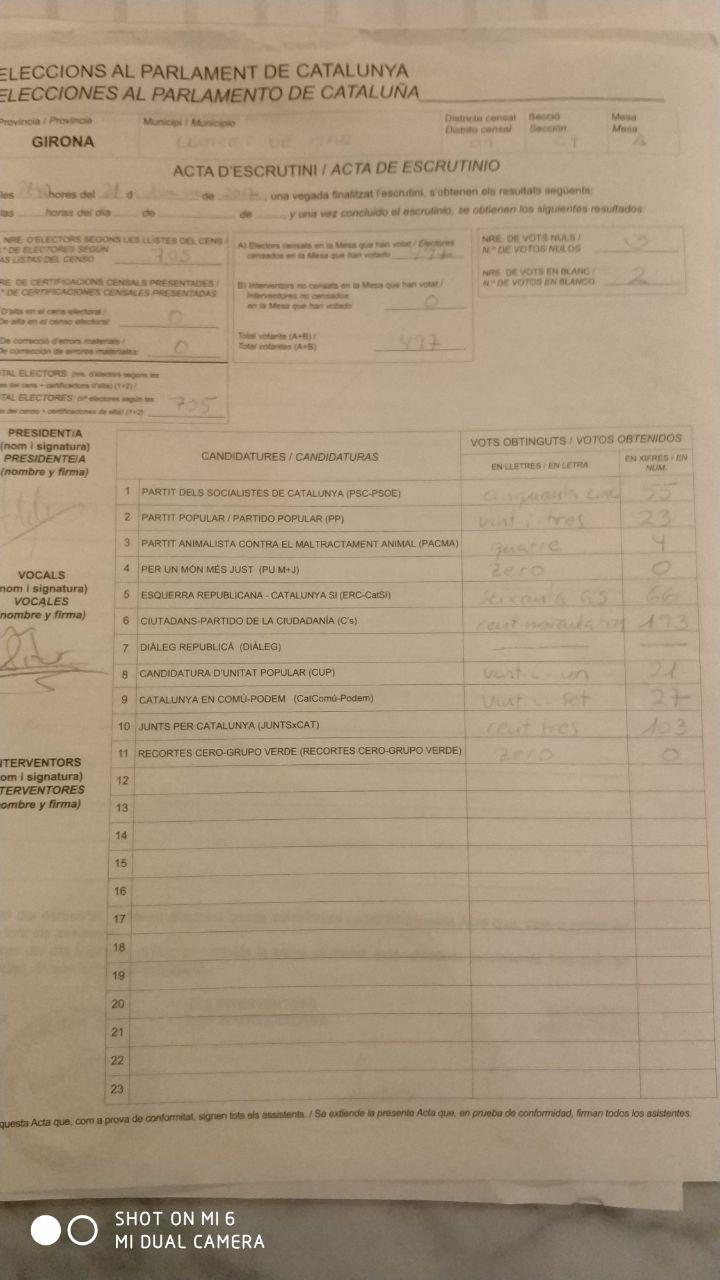 ELECCIONS AL PARLAMENT DE CATALUNYA
ELECCIONES AL PARLAMENTO DE CATALUÑA
Província / Provincia Municipi / Municipio Districte censal Secció Mesa
Distrito censal Sección Mesa
GIRONA LLORET DE MAR 01 01 A
ACTA D'ESCRUTINI / ACTA DE ESCRUTINIO
les hores del 21 d de 2017, una vegada finalitzat l'escrutini, s'obtenen els resultats següents:
las horas del día de de , y una vez concluido el escrutinio, se obtienen los siguientes resultados:
NRE. D'ELECTORS SEGONS LES LLISTES DEL CENS /
Nº DE ELECTORES SEGÚN
LAS LISTAS DEL CENSO 705
NRE. DE CERTIFICACIONS CENSALS PRESENTADES /
Nº DE CERTIFICACIONES CENSALES PRESENTADAS
D'alta en el cens electoral /
De alta en el censo electoral: 0
De correcció d'errors materials /
De corrección de errores materiales: 0
TOTAL ELECTORS: (nre. d'electors segons les
llistes del cens + certificacions d'alta) (1+2) /
TOTAL ELECTORES: (nº electores según las
listas del censo + certificaciones de alta) (1+2) 705
A) Electors censats en la Mesa que han votat / Electores
censados en la Mesa que han votado 497
B) Interventors no censats en la Mesa que han votat /
Interventores no censados
en la Mesa que han votado 0
Total votants (A+B) /
Total votantes (A+B) 497
NRE. DE VOTS NULS /
N.º DE VOTOS NULOS 3
NRE. DE VOTS EN BLANC /
N.º DE VOTOS EN BLANCO 2
PRESIDENT/A
(nom i signatura)
PRESIDENTE/A
(nombre y firma)
VOCALS
(nom i signatura)
VOCALES
(nombre y firma)
INTERVENTORS
(nom i signatura)
INTERVENTORES
(nombre y firma)
CANDIDATURES / CANDIDATURAS VOTS OBTINGUTS / VOTOS OBTENIDOS
EN LLETRES / EN LETRA EN XIFRES / EN NÚM.
1 PARTIT DELS SOCIALISTES DE CATALUNYA (PSC-PSOE) cinquanta cinc 55
2 PARTIT POPULAR / PARTIDO POPULAR (PP) vint i tres 23
3 PARTIT ANIMALISTA CONTRA EL MALTRACTAMENT ANIMAL (PACMA) quatre 4
4 PER UN MÓN MÉS JUST (PU M+J) zero 0
5 ESQUERRA REPUBLICANA - CATALUNYA SÍ (ERC-CatSí) seixanta sis 66
6 CIUTADANS-PARTIDO DE LA CIUDADANÍA (C's) cent noranta tres 193
7 DIÀLEG REPUBLICÀ (DIÀLEG)
8 CANDIDATURA D'UNITAT POPULAR (CUP) vint i un 21
9 CATALUNYA EN COMÚ-PODEM (CatComú-Podem) vint i set 27
10 JUNTS PER CATALUNYA (JUNTSxCAT) cent tres 103
11 RECORTES CERO-GRUPO VERDE (RECORTES CERO-GRUPO VERDE) zero 0
12
13
14
15
16
17
18
19
20
21
22
23
questa Acta que, com a prova de conformitat, signen tots els assistents. / Se extiende la presente Acta que, en prueba de conformidad, firman todos los asistentes.
SHOT ON MI 6
MI DUAL CAMERA